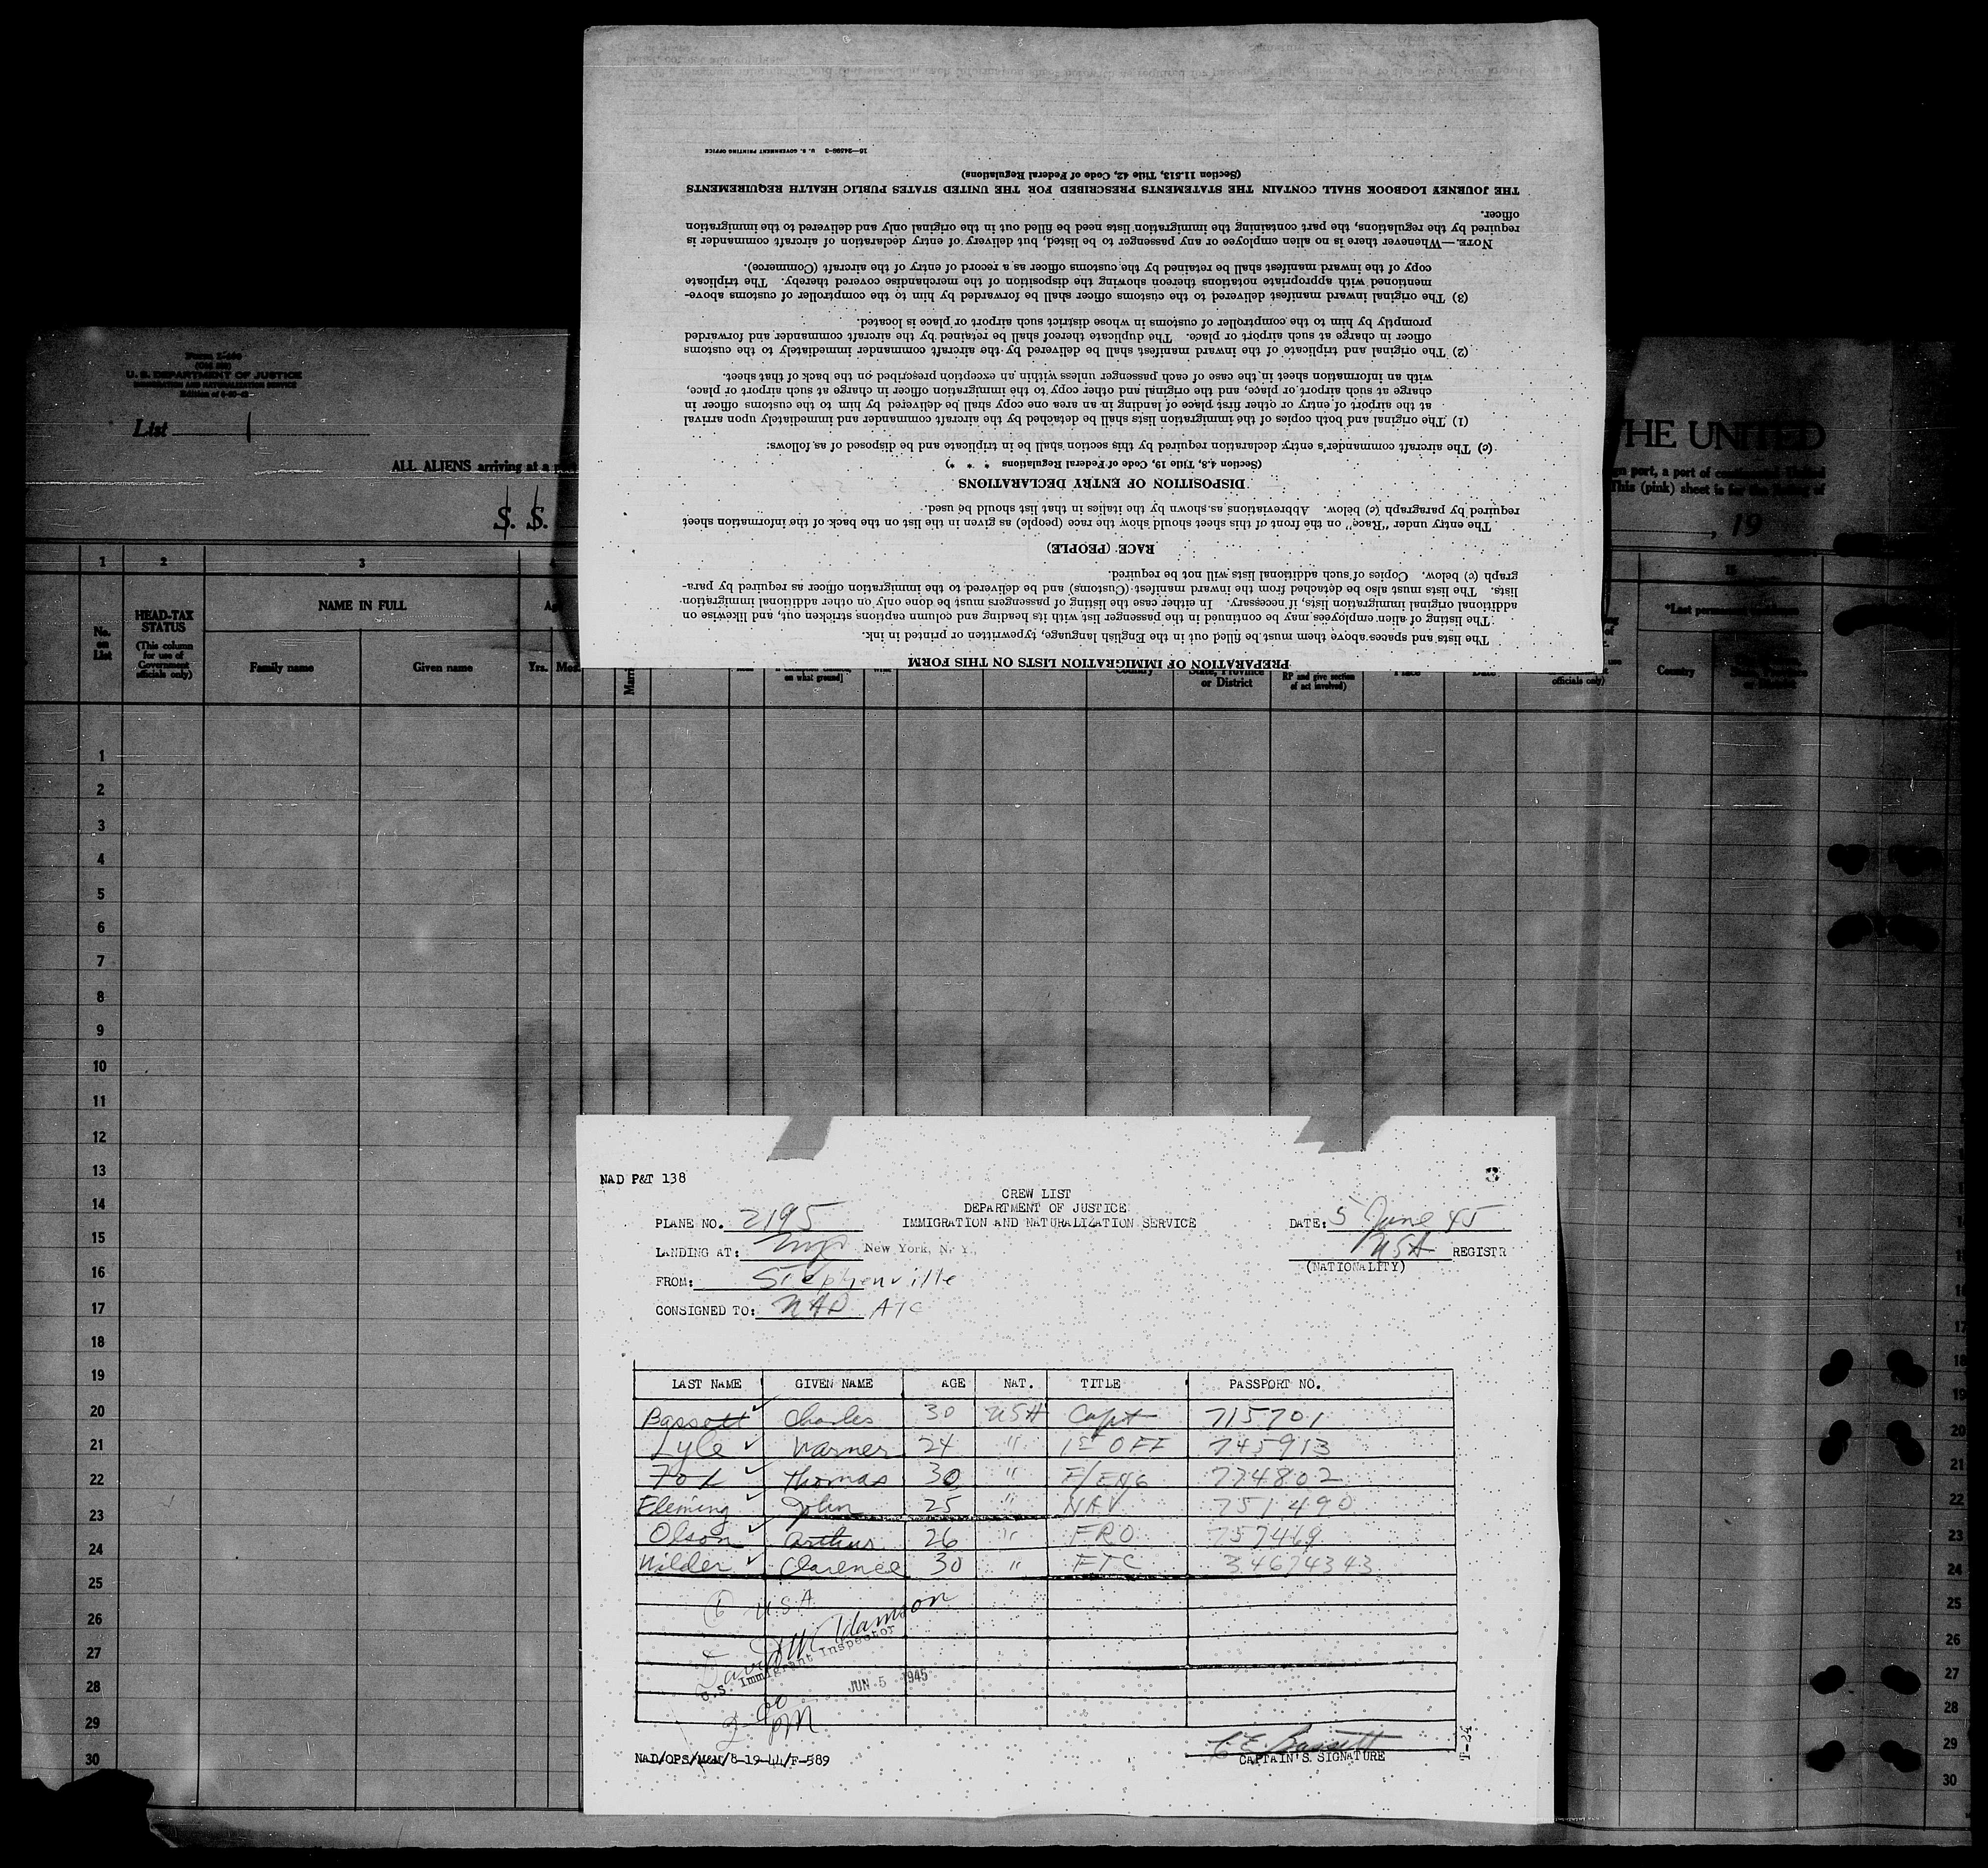 16—24598-3 U. S. GOVERNMENT PRINTING OFFICE
(Section 11.513, Title 42, Code of Federal Regulations)
THE JOURNEY LOGBOOK SHALL CONTAIN THE STATEMENTS PRESCRIBED FOR THE UNITED STATES PUBLIC HEALTH REQUIREMENTS
officer.
required by the regulations, the part containing the immigration lists need be filled out in the original only and delivered to the immigration
NOTE.—Whenever there is no alien employee or any passenger to be listed, but delivery of entry declaration of aircraft commander is
copy of the inward manifest shall be retained by the customs officer as a record of entry of the aircraft (Commerce).
mentioned with appropriate notations thereon showing the disposition of the merchandise covered thereby. The triplicate
(3) The original inward manifest delivered to the customs officer shall be forwarded by him to the comptroller of customs above-
promptly by him to the comptroller of customs in whose district such airport or place is located.
officer in charge at such airport or place. The duplicate thereof shall be retained by the aircraft commander and forwarded
(2) The original and triplicate of the inward manifest shall be delivered by the aircraft commander immediately to the customs
with an information sheet in the case of each passenger unless within an exception prescribed on the back of that sheet.
charge at such airport or place, and the original and other copy to the immigration officer in charge at such airport or place,
at the airport of entry or other first place of landing in an area one copy shall be delivered by him to the customs officer in
(1) The original and both copies of the immigration lists shall be detached by the aircraft commander and immediately upon arrival
(c) The aircraft commander's entry declaration required by this section shall be in triplicate and be disposed of as follows:
(Section 4.8, Title 19, Code of Federal Regulations * * *)
DISPOSITION OF ENTRY DECLARATIONS
required by paragraph (c) below. Abbreviations as shown by the italics in that list should be used.
The entry under "Race" on the front of this sheet should show the race (people) as given in the list on the back of the information sheet
RACE (PEOPLE)
graph (c) below. Copies of such additional lists will not be required.
lists. The lists must also be detached from the inward manifest (Customs) and be delivered to the immigration officer as required by para-
additional original immigration lists, if necessary. In either case the listing of passengers must be done only on other additional immigration
The listing of alien employees may be continued in the passenger list with its heading and column captions stricken out, and likewise on
The lists and spaces above them must be filled out in the English language, typewritten or printed in ink.
PREPARATION OF IMMIGRATION LISTS ON THIS FORM
U. S. DEPARTMENT OF JUSTICE
IMMIGRATION AND NATURALIZATION SERVICE
List 1
ALL ALIENS arriving at a
HE UNITED
gn port, a port of continental United
This (pink) sheet is for the listing of
S. S.
, 19
1 2 3
No. on List
HEAD-TAX STATUS
(This column for use of Government officials only)
NAME IN FULL
Family name Given name
Yrs. Mos.
on what ground]
Country
State, Province or District
RP and give section of act involved)
Place
Date
officials only)
*Last permanent
Country
1
2
3
4
5
6
7
8
9
10
11
12
13
14
15
16
17
18
19
20
21
22
23
24
25
26
27
28
29
30
NAD P&T 138
CREW LIST
DEPARTMENT OF JUSTICE
IMMIGRATION AND NATURALIZATION SERVICE
PLANE NO. 2195
DATE: 5 June 45
LANDING AT: New York, N. Y.
USA REGISTR
(NATIONALITY)
FROM: Stephenville
CONSIGNED TO: NAD ATC
LAST NAME GIVEN NAME AGE NAT. TITLE PASSPORT NO.
Bassett Charles 30 USA Capt 715701
Lyle Warner 24 " 1st OFF 745913
Fox Thomas 30 " F/ENG 774802
Fleming John 25 " NAV 751490
Olson Arthur 26 " FRO 757469
Wilder Clarence 30 " FTC 34674343
6 U.S.A.
David W. Adamson
U.S. Immigrant Inspector
JUN 5 1945
2 00 PM
C E Bassett
CAPTAIN'S SIGNATURE
NAD/OPS/M&M/8-19-44/F-589
T-24
17
18
19
20
21
22
23
24
25
26
27
28
29
30